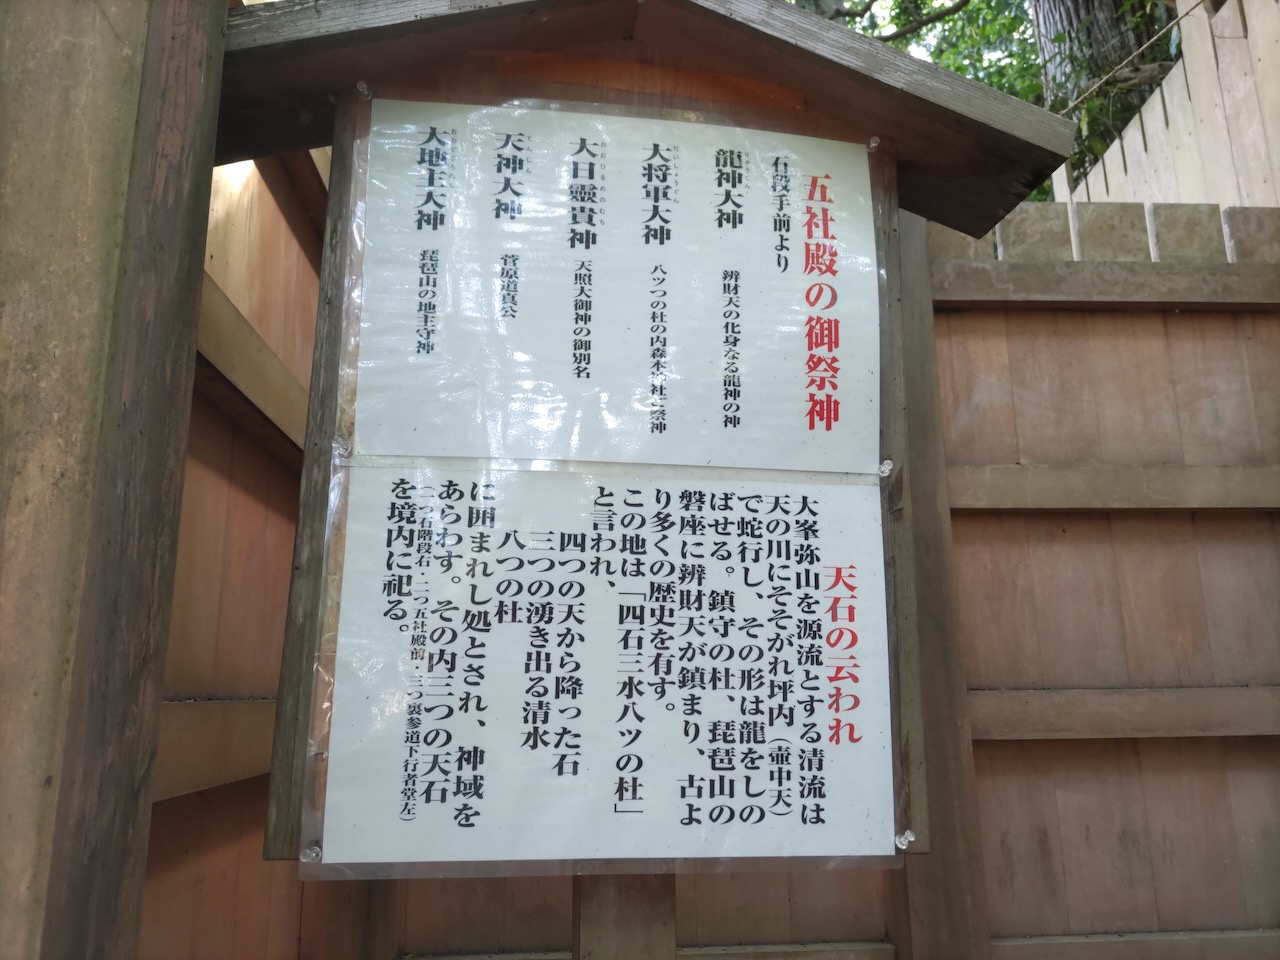 五社殿の御祭神
石段手前より
龍神大神 辨財天の化身なる龍神の神
大将軍大神 八ツつの杜の内森本神社ご祭神
大日靈貴神 天照大御神の御別名
天神大神 菅原道真公
大地主大神 琵琶山の地主守神
天石の云われ
大峯弥山を源流とする清流は
天の川にそそがれ坪内(壷中天)
で蛇行し、その形は龍をしの
ばせる。鎮守の杜、琵琶山の
磐座に辨財天が鎮まり、古よ
り多くの歴史を有す。
この地は「四石三水八ツの杜」
と言われ、
四つの天から降った石
三つの湧き出る清水
八つの杜
に囲まれし処とされ、神域を
あらわす。その内三つの天石
(一つ石階段右・二つ五社殿前・三つ裏参道下行者堂左)
を境内に祀る。